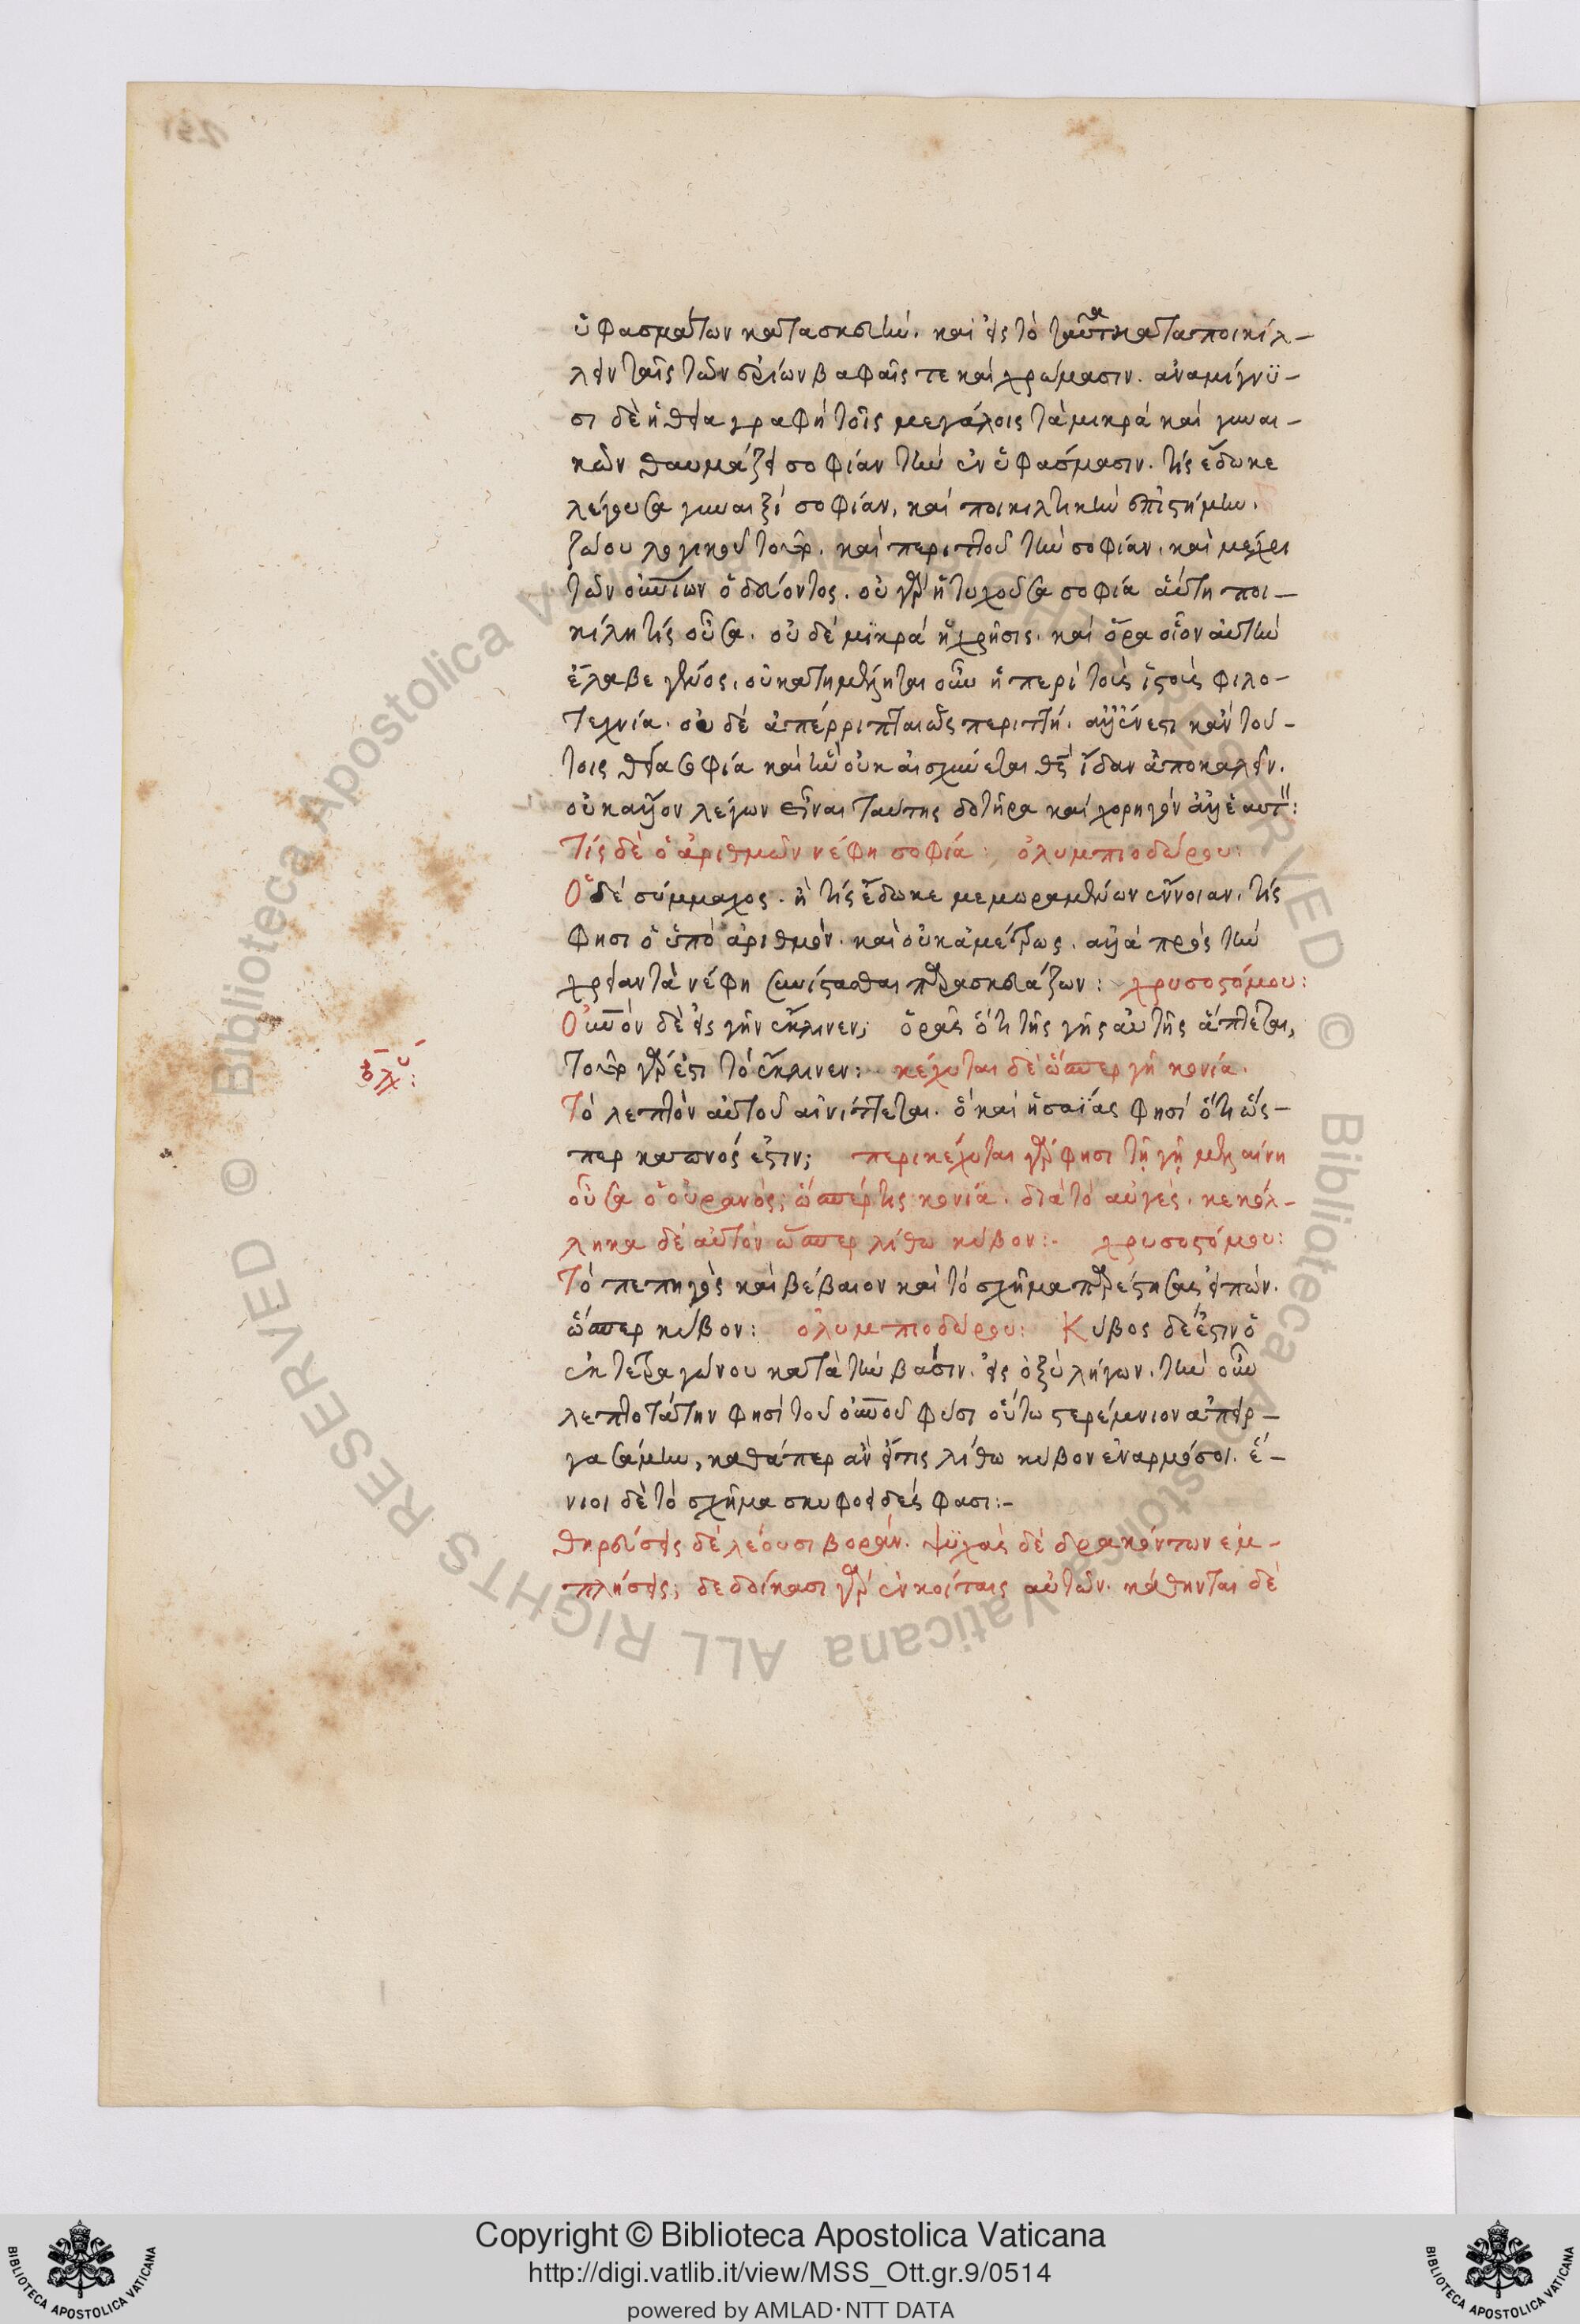 ὑφασμάτων κατασκευὴν. καὶ εἰς τὸ ταῦτα καταποικίλ-
λειν ταῖς τῶν ἐρίων βαφαῖς τε καὶ χρώμασιν. ἀναμίγνυ-
σι δὲ ἡ θεία γραφὴ τοῖς μεγάλοις τὰ μικρὰ καὶ γυναι-
κῶν θαυμάζει σοφίαν τὴν ἐν ὑφάσμασιν. τίς ἔδωκε
λέγουσα γυναιξὶ σοφίαν, καὶ ποικιλτικὴν ἐπιστήμην.
ζώου λογικοῦ τοῦ ἀνθρώπου. καὶ περιττοῦ τὴν σοφίαν. καὶ μέχρι
τῶν οὐρανίων ὁδεύοντος. οὐ γὰρ ἡ τυχοῦσα σοφία αὕτη ποι-
κίλη τίς οὖσα. οὐδὲ μικρὰ ἡ χρῆσις. καὶ ὅρα οἷον αὐτὴν
ἔλαβε γένος. οὐκ ἀτημέλητος οὖν ἡ περὶ τοὺς ἱστοὺς φιλο-
τεχνία. οὐδὲ ἀπέρριπται ὡς περιττή. ἀλλ' ἔνεστι κἂν τού-
τοις θεία σοφία καὶ ἣν οὐκ αἰσχύνεται θεὸς ἰδίαν ἀποκαλεῖν.
οὐκ ἄλλον λέγων εἶναι ταύτης δοτῆρα καὶ χορηγὸν ἀλλ' ἑαυτόν:
Τίς δὲ ὁ ἀριθμῶν νέφη σοφία: ὀλυμπιοδώρου:
Ὁ δὲ σύμμαχος. ἢ τίς ἔδωκε μεμωραμένων ἔννοιαν. τίς
φησι ὁ ὑπὸ ἀριθμὸν. καὶ οὐκ ἀμέτρως. ἀλλὰ πρὸς τὴν
χρείαν τὰ νέφη συνίστασθαι παρασκευάζων: χρυσοστόμου:
Οὐρανὸν δὲ εἰς γῆν ἔκλινεν; ὁρᾷς ὅτι τῆς γῆς αὐτῆς ἅπτεται,
τοῦτο γάρ ἐστι τὸ ἔκλινεν: κέχυται δὲ ὥσπερ γῆ κονία.
Τὸ λεπτὸν αὐτοῦ αἰνίττεται. ὃ καὶ ἡσαΐας φησὶ ὅτι ὥσ-
περ καπνός ἐστιν; περικέχυται γάρ φησι τῇ γῇ μελαίνη
οὖσα ὁ οὐρανὸς; ὥσπέρ τις κονία. διὰ τὸ αὐγές. κεκόλ-
ληκα δὲ αὐτὸν ὥσπερ λίθω κύβον:- χρυσοστόμου:
Τὸ πεπηγὸς καὶ βέβαιον καὶ τὸ σχῆμα παρέστησας εἰπών.
ὥσπερ κύβον: ὀλυμπιοδώρου: Κύβος δέ ἐστιν ὁ
ἐκ τετραγώνου κατὰ τὴν βάσιν. εἰς ὀξὺ λήγων. τὴν οὖν
λεπτοτάτην φησὶ τοῦ οὐρανοῦ φύσι οὕτω στερέμνιον ἀπειρ-
γασάμην, καθάπερ ἂν εἴ τις λίθω κύβον ἐναρμόσοι. ἔ-
νιοι δὲ τὸ σχῆμα σκυφοειδές φασι:-
θηρεύσεις δὲ λέουσι βορὰν. ψυχὰς δὲ δρακόντων ἐμ-
πλήσεις; δεδοίκασι γὰρ ἐν κοίταις αὐτῶν. κάθηνται δὲ
Copyright © Biblioteca Apostolica Vaticana
http://digi.vatlib.it/view/MSS_Ott.gr.9/0514
powered by AMLAD·NTT DATA
BIBLIOTECA APOSTOLICA VATICANA
BIBLIOTECA APOSTOLICA VATICANA
© Biblioteca Apostolica Vaticana ALL RIGHTS RESERVED © Biblioteca Apostolica Vaticana ALL RIGHTS RESERVED